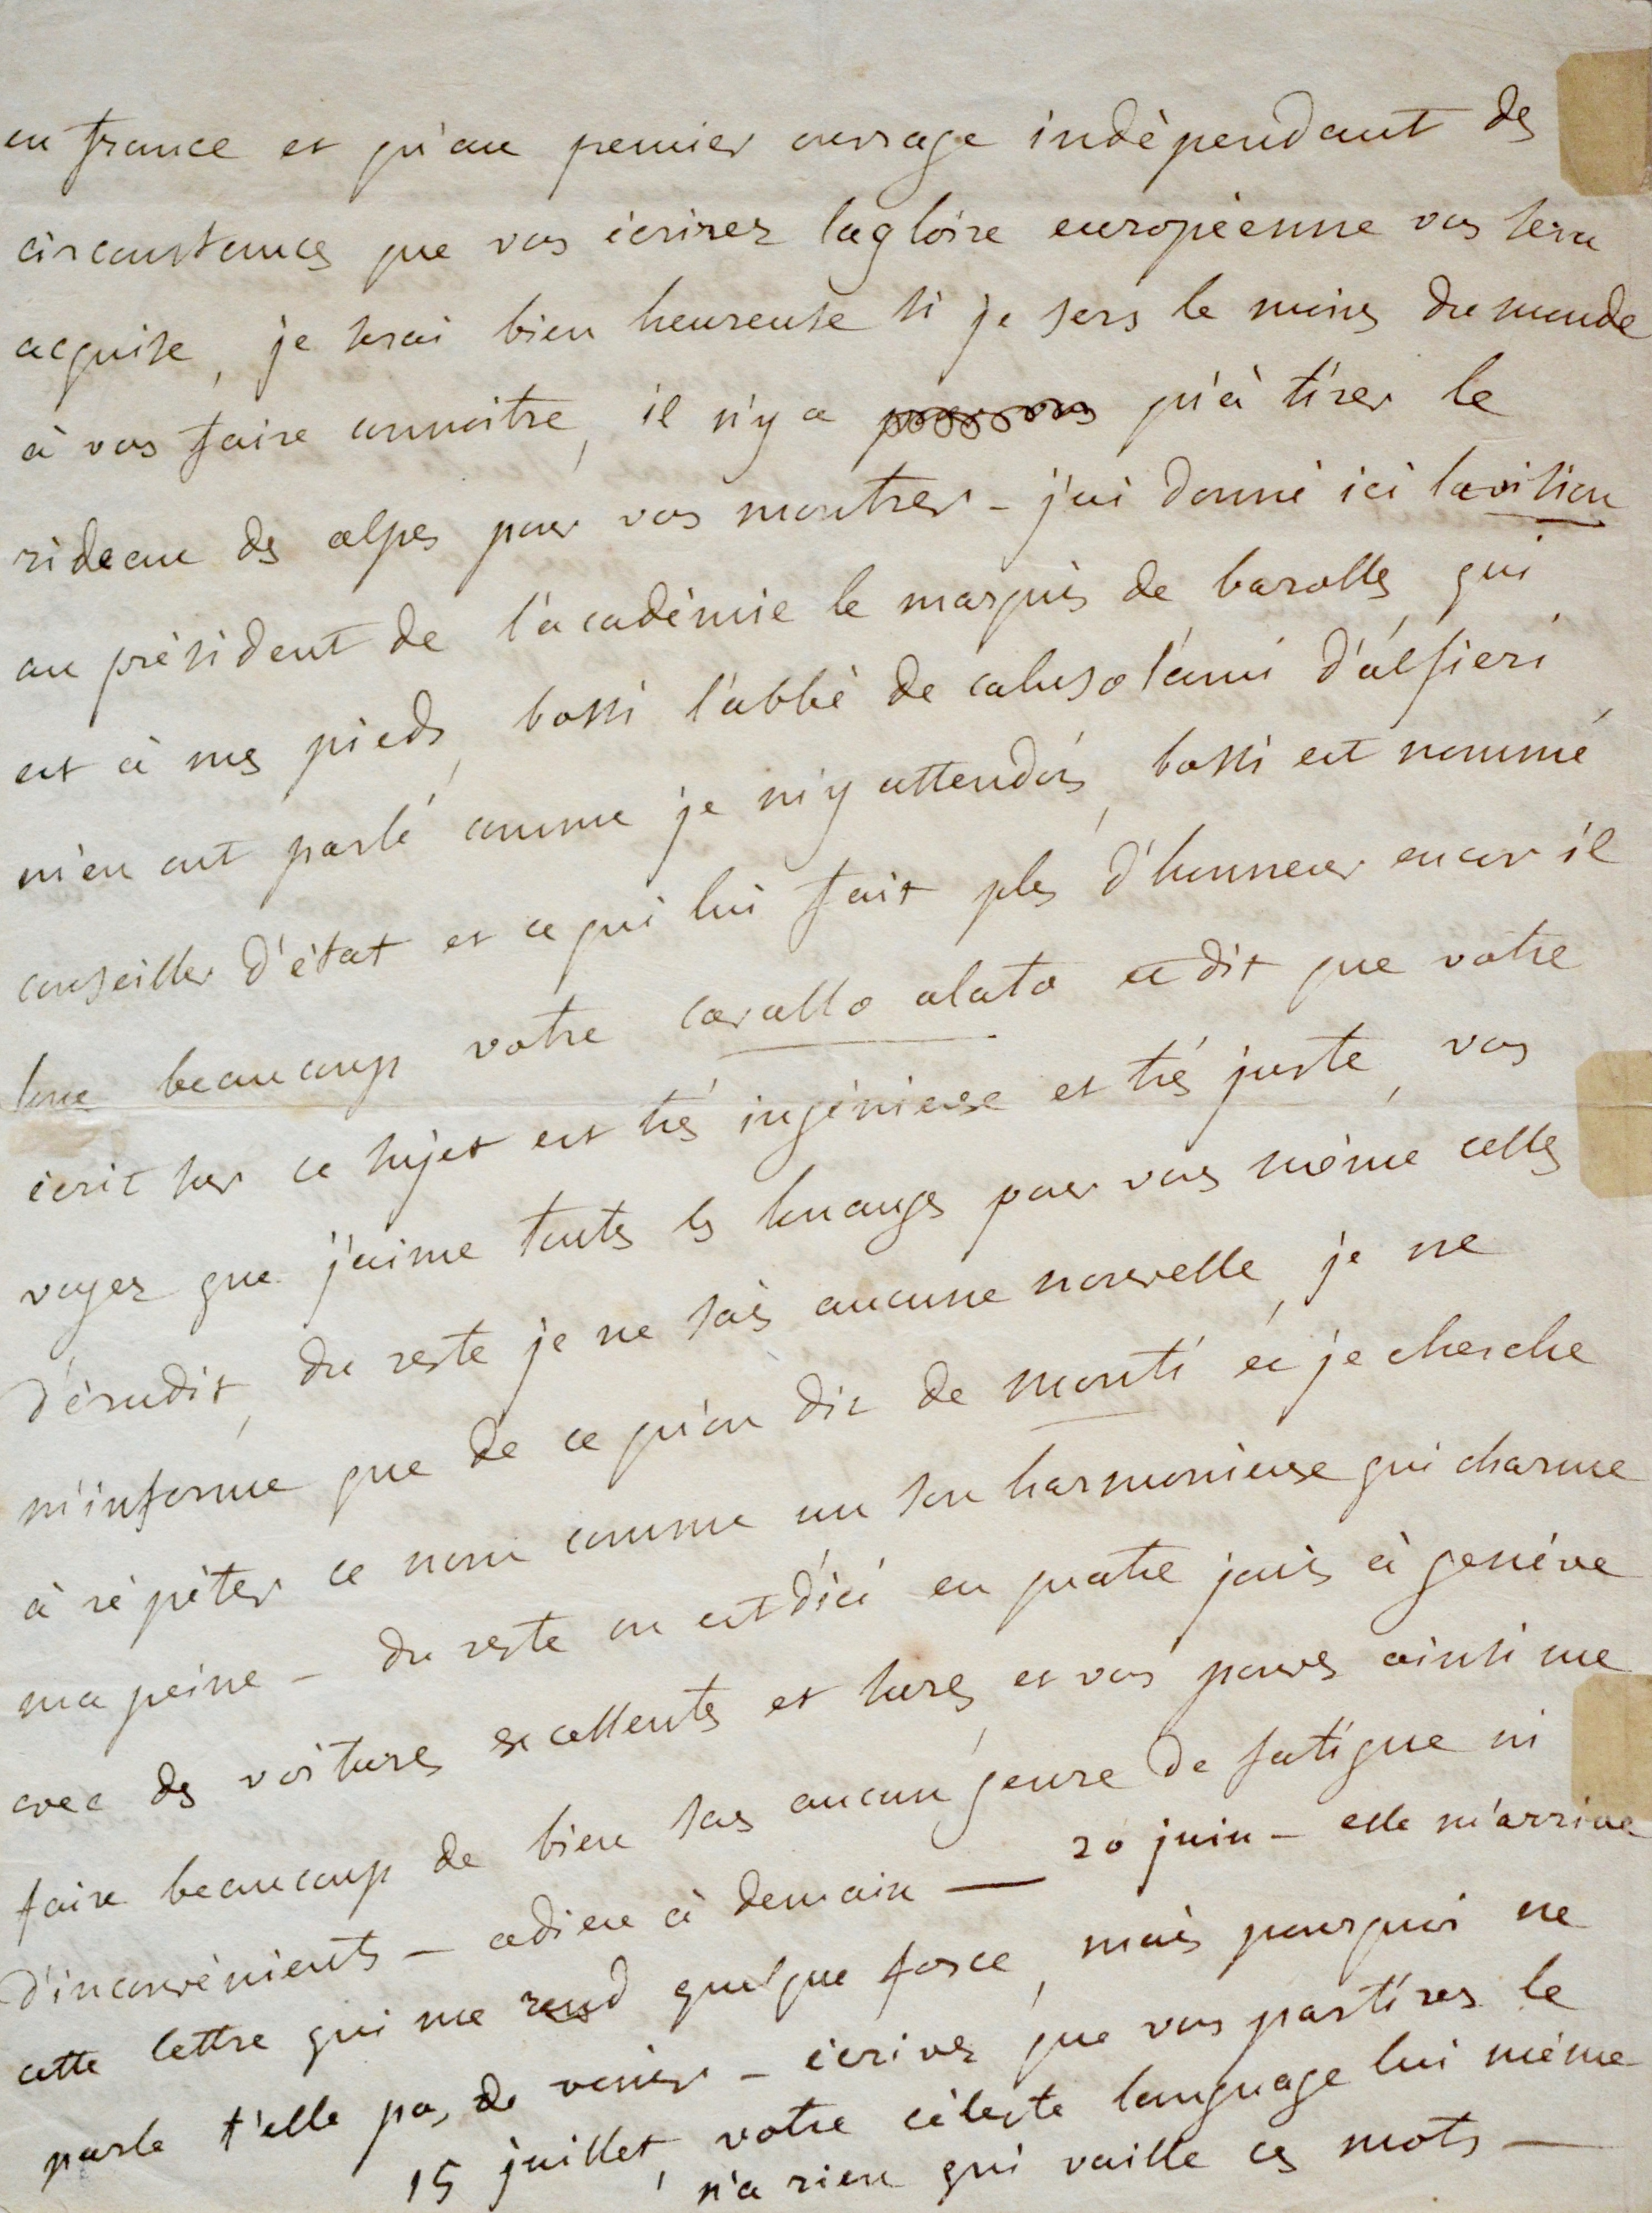 en france et qu'au premier ouvrage indépendant des
circonstances que vous écrirez la gloire européenne vous sera
acquise, je serai bien heureuse si je sers le moins du monde
à vous faire connoitre, il n'y a qu'à tirer le
rideau des alpes pour vous montrer - j'ai donné ici la vision
au président de l'académie le marquis de barolles, qui
est à mes pieds, bossi l'abbé de caluso l'ami d'alfieri,
m'en ont parlé comme je m'y attendois, bossi est nommé
conseiller d'état et ce qui lui fait plus d'honneur encor il
loue beaucoup votre cavallo alato et dit que votre
écrit sur ce sujet est très ingénieuse et très juste, vous
voyez que j'aime toutes les louanges pour vous même celles
d'érudit, du reste je ne sais aucune nouvelle, je ne
m'informe que de ce qu'on dit de monti et je cherche
à répéter ce nom comme un son harmonieuse qui charme
ma peine - du reste on est d'ici en quatre jours à genève
avec des voitures excellentes et sures, et vous pouvez ainsi me
faire beaucoup de bien sans aucun genre de fatigue ni
d'inconvénients - adieu à demain — 20 juin - elle m'arrive
cette lettre qui me rend quelque force, mais pourquoi ne
parle t'elle pas de venir - écrivez que vous partirez le
15 juillet, votre céleste language lui même
n'a rien qui vaille ces mots —